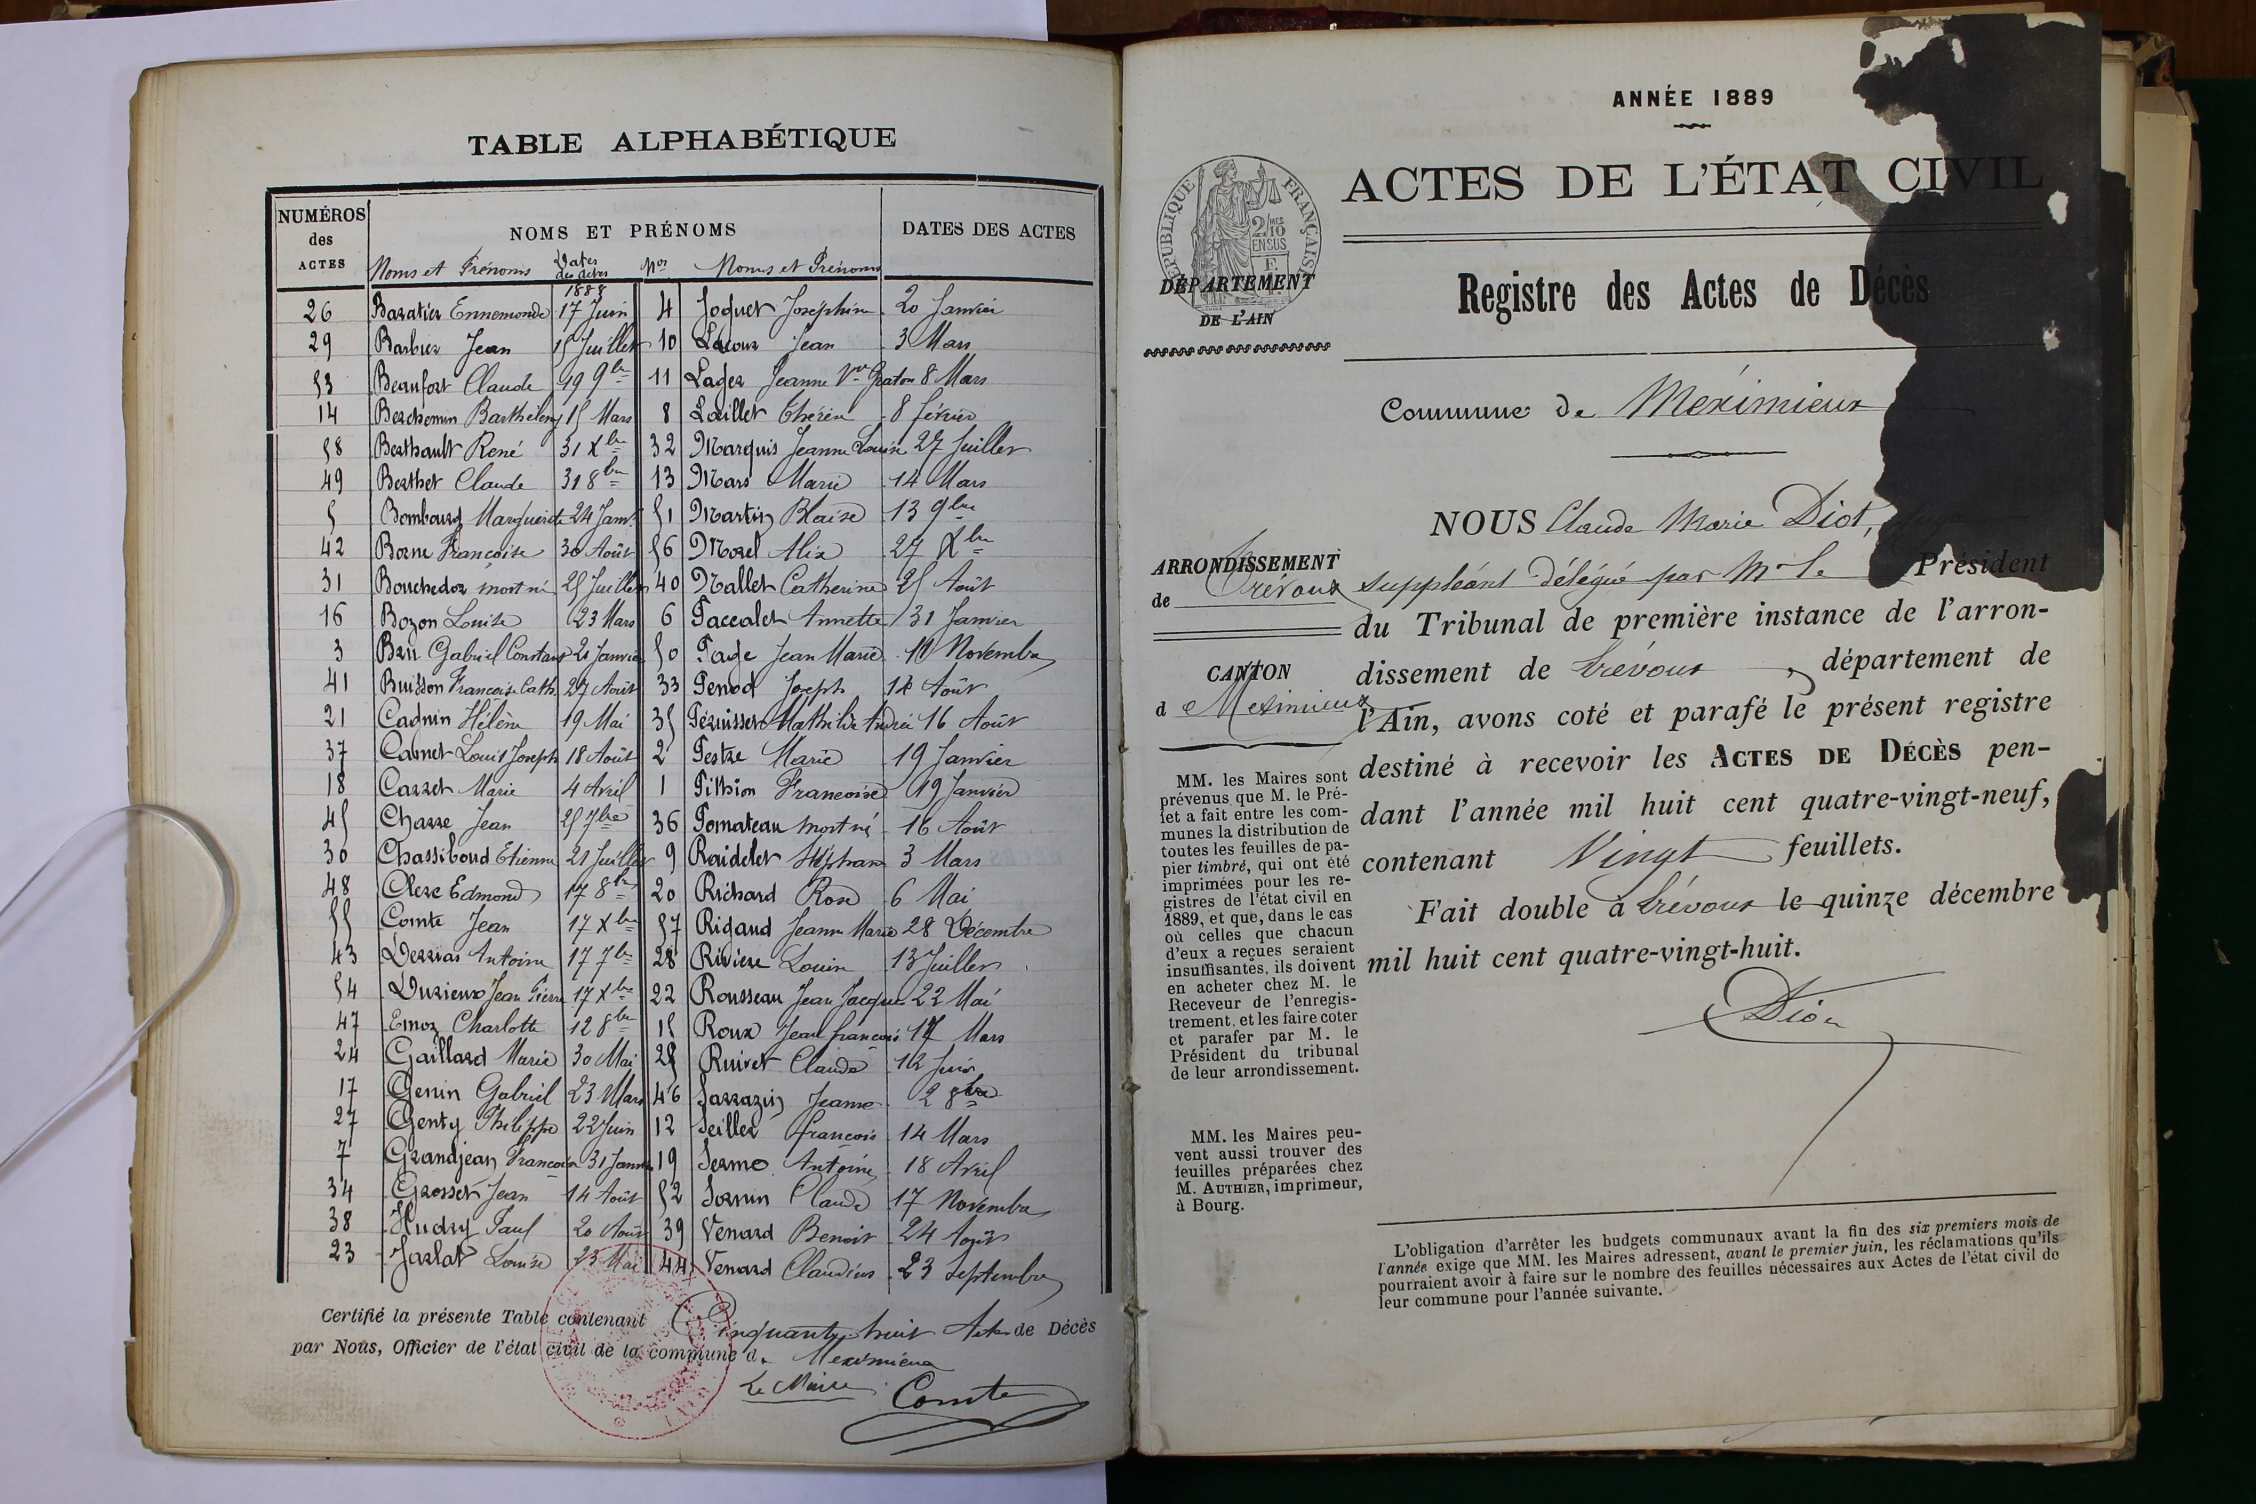 TABLE ALPHABÉTIQUE
NUMÉROS des ACTES
NOMS ET PRÉNOMS
DATES DES ACTES
Noms et Prénoms Dates des actes Nos Noms et Prénoms
1888
26 Baratier Ennemonde 17 Juin 4 Joguet Joséphine 20 Janvier
29 Barbier Jean 15 Juillet 10 Lacour Jean 3 Mars
53 Beaufort Claude 19 9bre 11 Lager Jeanne Vve Graton 8 Mars
14 Berchemin Barthélemy 15 Mars 8 Laillet Thérèse 8 février
58 Berthault René 31 Xbre 32 Marquis Jeanne Louise 27 Juillet
49 Berthet Claude 31 8bre 13 Mars Marie 14 Mars
5 Bombourg Marguerite 24 Janv. 51 Martin Blaise 13 9bre
42 Borne Françoise 30 Août 56 Morel Alix 27 Xbre
31 Bouchedor mort né 25 Juillet 40 Nallet Catherine 25 Août
16 Bozon Louise 23 Mars 6 Paccalet Annette 31 Janvier
3 Bru Gabriel Constant 20 Janvier 50 Page Jean Marie 10 Novembre
41 Buisson Françoise Cath. 27 Août 33 Penod Joseph 12 Août
21 Cagnin Hélène 19 Mai 35 Pérusset Mathilde Andrée 16 Août
37 Carnet Louis Joseph 18 Août 2 Pestre Marie 19 Janvier
18 Carret Marie 4 Avril 1 Pithion Françoise 19 Janvier
45 Charre Jean 25 7bre 36 Pomateau mort né 16 Août
30 Chassiboud Etienne 21 Juillet 9 Raidelet Stéphane 3 Mars
48 Clerc Edmond 17 8bre 20 Richard Rose 6 Mai
55 Comte Jean 17 Xbre 57 Rigaud Jeanne Marie 28 Décembre
43 Derrias Antoine 17 7bre 28 Rivière Louise 13 Juillet
54 Durieux Jean Pierre 17 Xbre 22 Rousseau Jean Jacques 22 Mai
47 Emoz Charlotte 12 8bre 15 Roux Jean françois 17 Mars
24 Gaillard Marie 30 Mai 25 Ruivet Claude 12 Juin
17 Genin Gabriel 23 Mars 46 Sarrazin Jeanne 2 8bre
27 Genty Philippe 22 Juin 12 Seiller françois 14 Mars
7 Grandjean François 31 Janvier 19 Serme Antoine 18 Avril
34 Grosset Jean 14 Août 52 Sornin Claude 17 Novembre
38 Hudry Paul 20 Août 39 Venard Benoit 24 Août
23 Jarlat Louise 23 Mai 44 Venard Claudius 23 Septembre
Certifié la présente Table contenant Cinquante huit Actes de Décès
par Nous, Officier de l'état civil de la commune d. Meximieux
Le Maire Comte
ANNÉE 1889
ACTES DE L'ÉTAT CIVIL
RÉPUBLIQUE FRANÇAISE
DÉPARTEMENT
DE L'AIN
Registre des Actes de Décès
Commune de Meximieux
NOUS Claude Marie Diot,
suppléant délégué par Mr le Président
du Tribunal de première instance de l'arron-
dissement de Trévoux, département de
l'Ain, avons coté et parafé le présent registre
destiné à recevoir les ACTES DE DÉCÈS pen-
dant l'année mil huit cent quatre-vingt-neuf,
contenant Vingt feuillets.
Fait double à Trévoux le quinze décembre
mil huit cent quatre-vingt-huit.
Diot
ARRONDISSEMENT
de Trévoux
CANTON
d Meximieux
MM. les Maires sont
prévenus que M. le Pré-
fet a fait entre les com-
munes la distribution de
toutes les feuilles de pa-
pier timbré, qui ont été
imprimées pour les re-
gistres de l'état civil en
1889, et que, dans le cas
où celles que chacun
d'eux a reçues seraient
insuffisantes, ils doivent
en acheter chez M. le
Receveur de l'enregis-
trement, et les faire coter
et parafer par M. le
Président du tribunal
de leur arrondissement.
MM. les Maires peu-
vent aussi trouver des
feuilles préparées chez
M. AUTHIER, imprimeur,
à Bourg.
L'obligation d'arrêter les budgets communaux avant la fin des six premiers mois de
l'année exige que MM. les Maires adressent, avant le premier juin, les réclamations qu'ils
pourraient avoir à faire sur le nombre des feuilles nécessaires aux Actes de l'état civil de
leur commune pour l'année suivante.